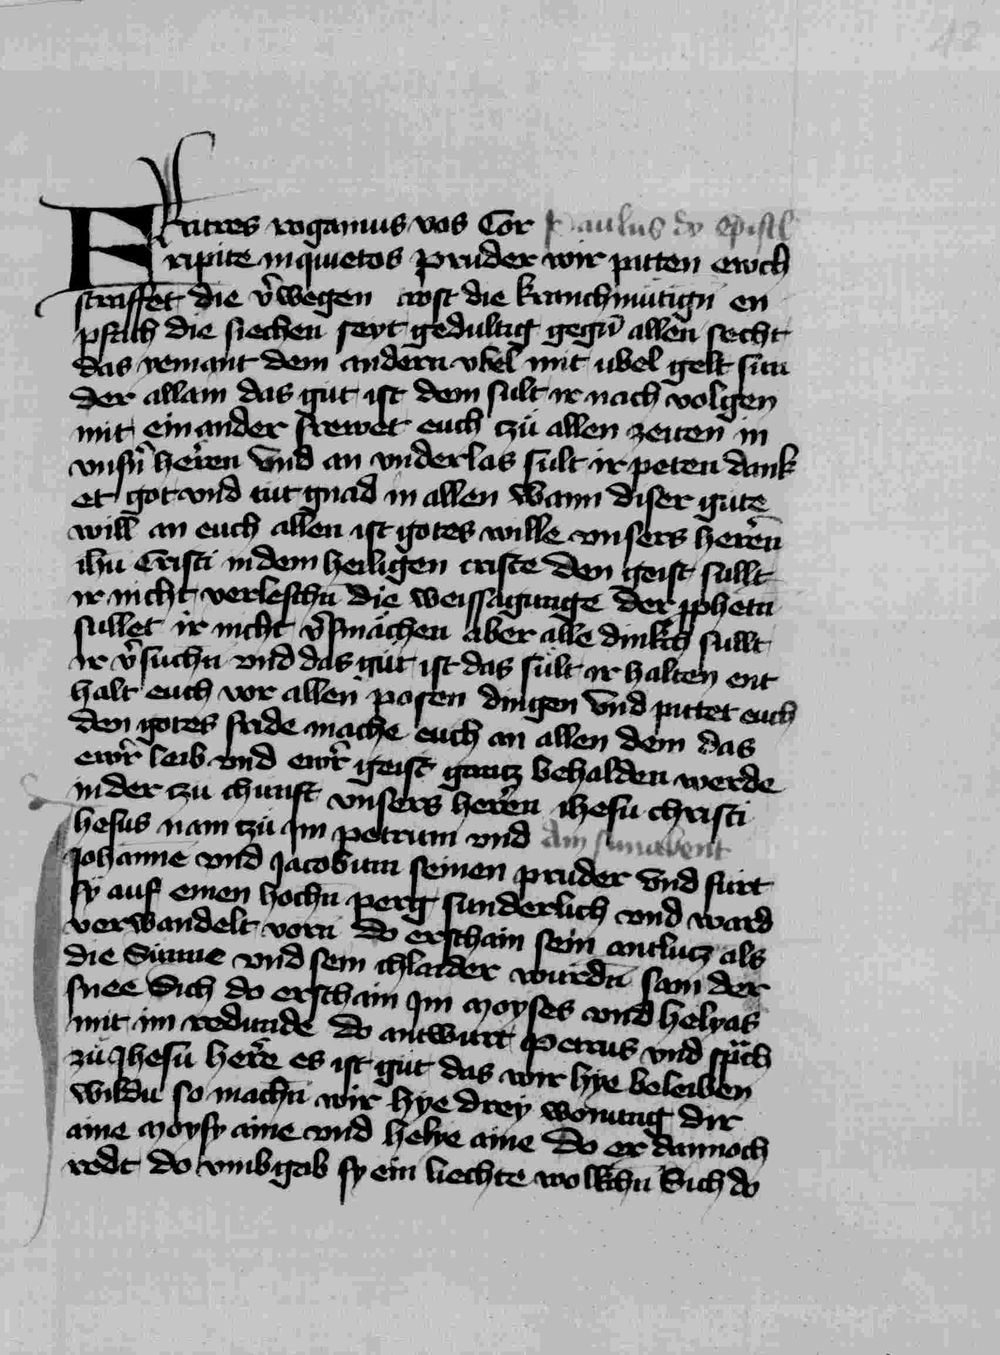 42
Fratres rogamus vos Cor Paulus dy epistl
ripite inquietos Pruder wir pitten ewch
straffet die v̄wegen trost die kranchmütign̄ en
pfach die siechen seyt gedultig gegn̄ allen secht
das yemant dem andern vbel mit ubel gelt sun
der allain das gut ist dem sult ir nach volgen
mit ein ander frewet euch czü allen zeiten in
vnsn̄ herren Vnd an vnderlas sult ir peten dank
et got vnd tut gnad in allen Wann diser gute
will an euch allen ist gotes wille vnsers herrēn
ihū Cristi in dem heiligen criste Den geist sullt
ir nicht verleschn̄ Die weissagunge der ꝓphetn̄
sullet ir nicht v̄smächen aber alle dinkch sullt
ir v̄suchn̄ vnd das güt ist das sült ir halten ent
halt euch vor allen posen dingen Vnd pittet euch
den gotes fride mache euch an allen dem das
ewr̄ leib vnd ewr̄ geist gantz behalden werde
in der czu chunft vnsers herren ihesu christi
hesus nam tzü im petrum vnd Am sunabent
Johanne vnd Jacobum seinen pruder Vnd fürt
sy auf einen hochn̄ perg sunderlich vnd ward
verwandelt vorn̄ Do erschain sein antlucz als
die Sunne vnd sein chlaider wurdn̄ sam der
snee Sich do erschain Im Moyses vnd helyas
mit im redunde Do antwurt Petrus vnd sprach
zü Jhesu herre es ist güt das wir hye beleiben
wildu so machn̄ wir hye drey wonung dir
aine Moysy aine vnd helye aine Do er dannoch
redt do vmbgab sy ein liechte wolkhn̄ Sich do